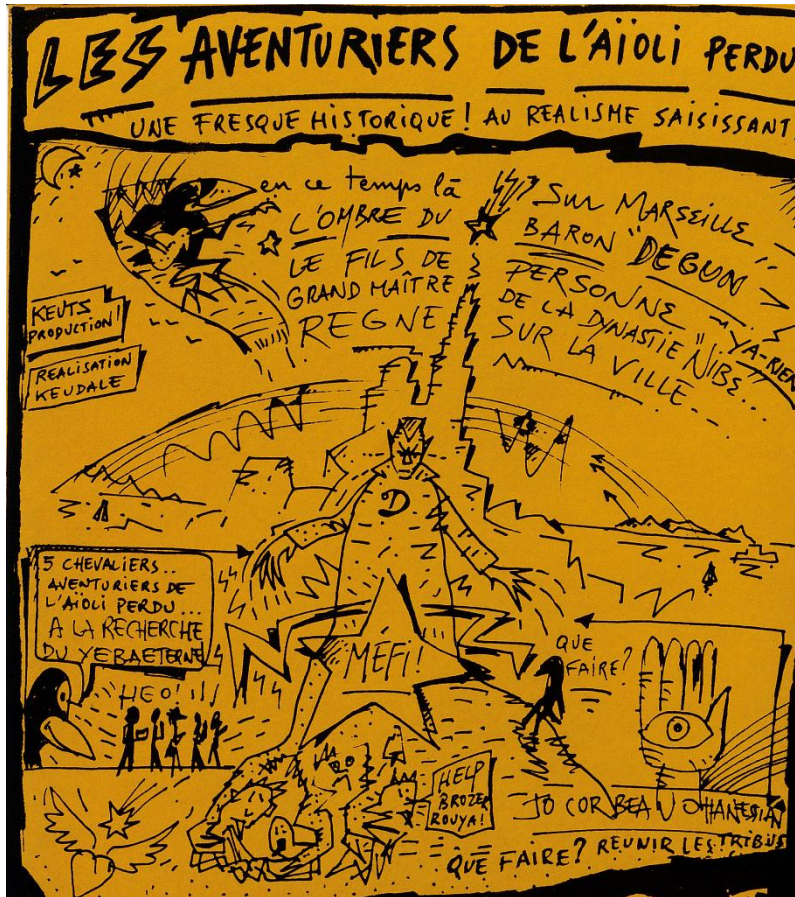 LES AVENTURIERS DE L'AÏOLI PERDU
UNE FRESQUE HISTORIQUE! AU REALISME SAISISSANT!
en ce temps là
L'OMBRE DU
LE FILS DE
GRAND MAÎTRE
REGNE
SUR MARSEILLE
BARON "DEGUN"
PERSONNE
DE LA DYNASTIE "NIBE"
YA-RIEN
SUR LA VILLE...
KEUTS
PRODUCTION!
REALISATION
KEUDALE
D
5 CHEVALIERS..
AVENTURIERS DE
L'AÏOLI PERDU...
A LA RECHERCHE
DU
HEO!
MÉFI!
QUE
FAIRE?
HELP
BROZER
ROUYA!
JO CORBEAU OHANESIAN
QUE FAIRE? REUNIR LES TRIBUS